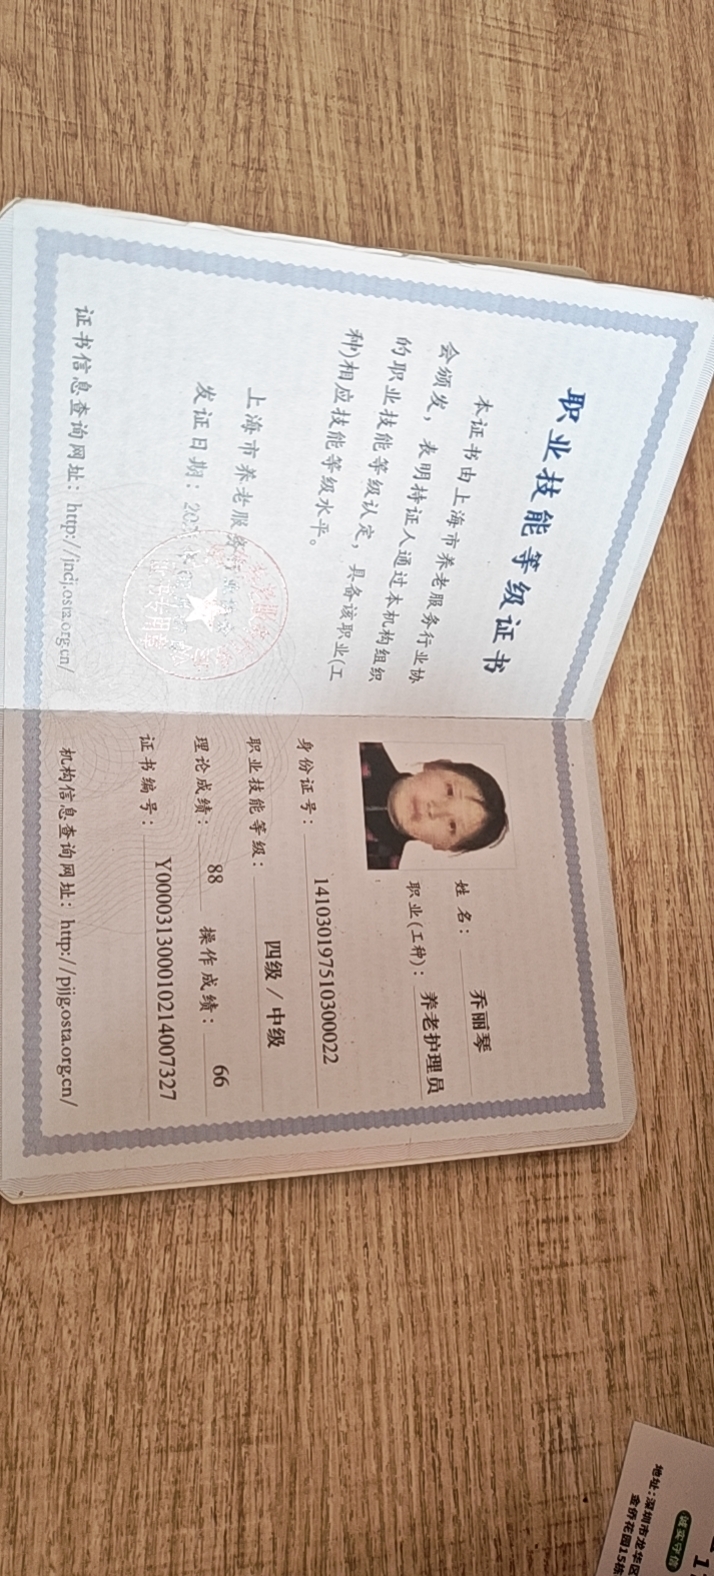 职业技能等级证书
本证书由上海市养老服务行业协
会颁发，表明持证人通过本机构组织
的职业技能等级认定，具备该职业(工
种)相应技能等级水平。
上海市养老服务
发证日期：202
证书信息查询网址：http://jndj.osta.org.cn/
姓名：乔丽琴
职业(工种)：养老护理员
身份证号：141030197510300022
职业技能等级：四级／中级
理论成绩：88 操作成绩：66
证书编号：Y000031300010214007327
机构信息查询网址：http://pjjg.osta.org.cn/
诚实守信
地址：深圳市龙华区
金侨花园15栋